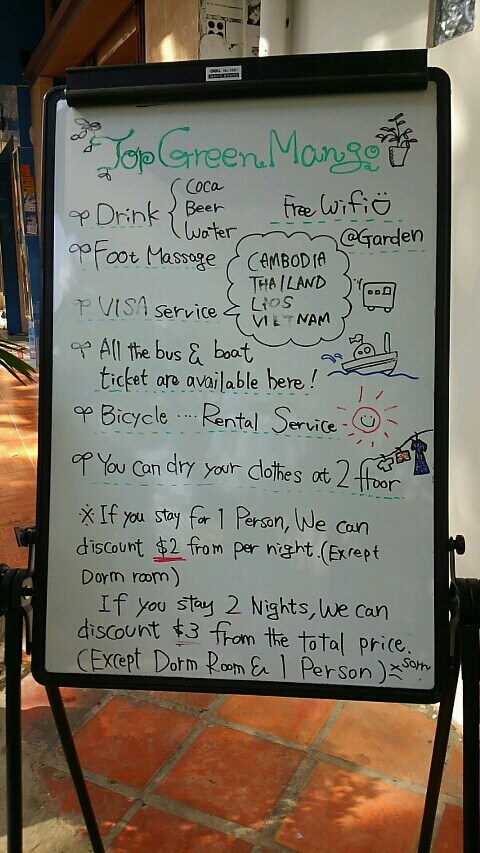 Top Green Mango
Drink { Coca
Beer
Water
Free Wifi
@Garden
Foot Massage
VISA service
CAMBODIA
THAILAND
LAOS
VIETNAM
All the bus & boat
ticket are available here!
Bicycle .... Rental Service
You can dry your clothes at 2 floor
※ If you stay for 1 Person, We can
discount $2 from per night. (Except
Dorm room)
If you stay 2 Nights, We can
discount $3 from the total price.
(Except Dorm Room & 1 Person)